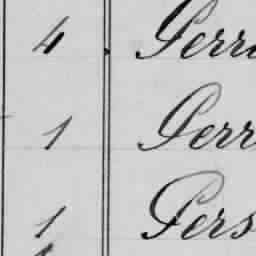 4 Perr
1 Perr
1 Pers